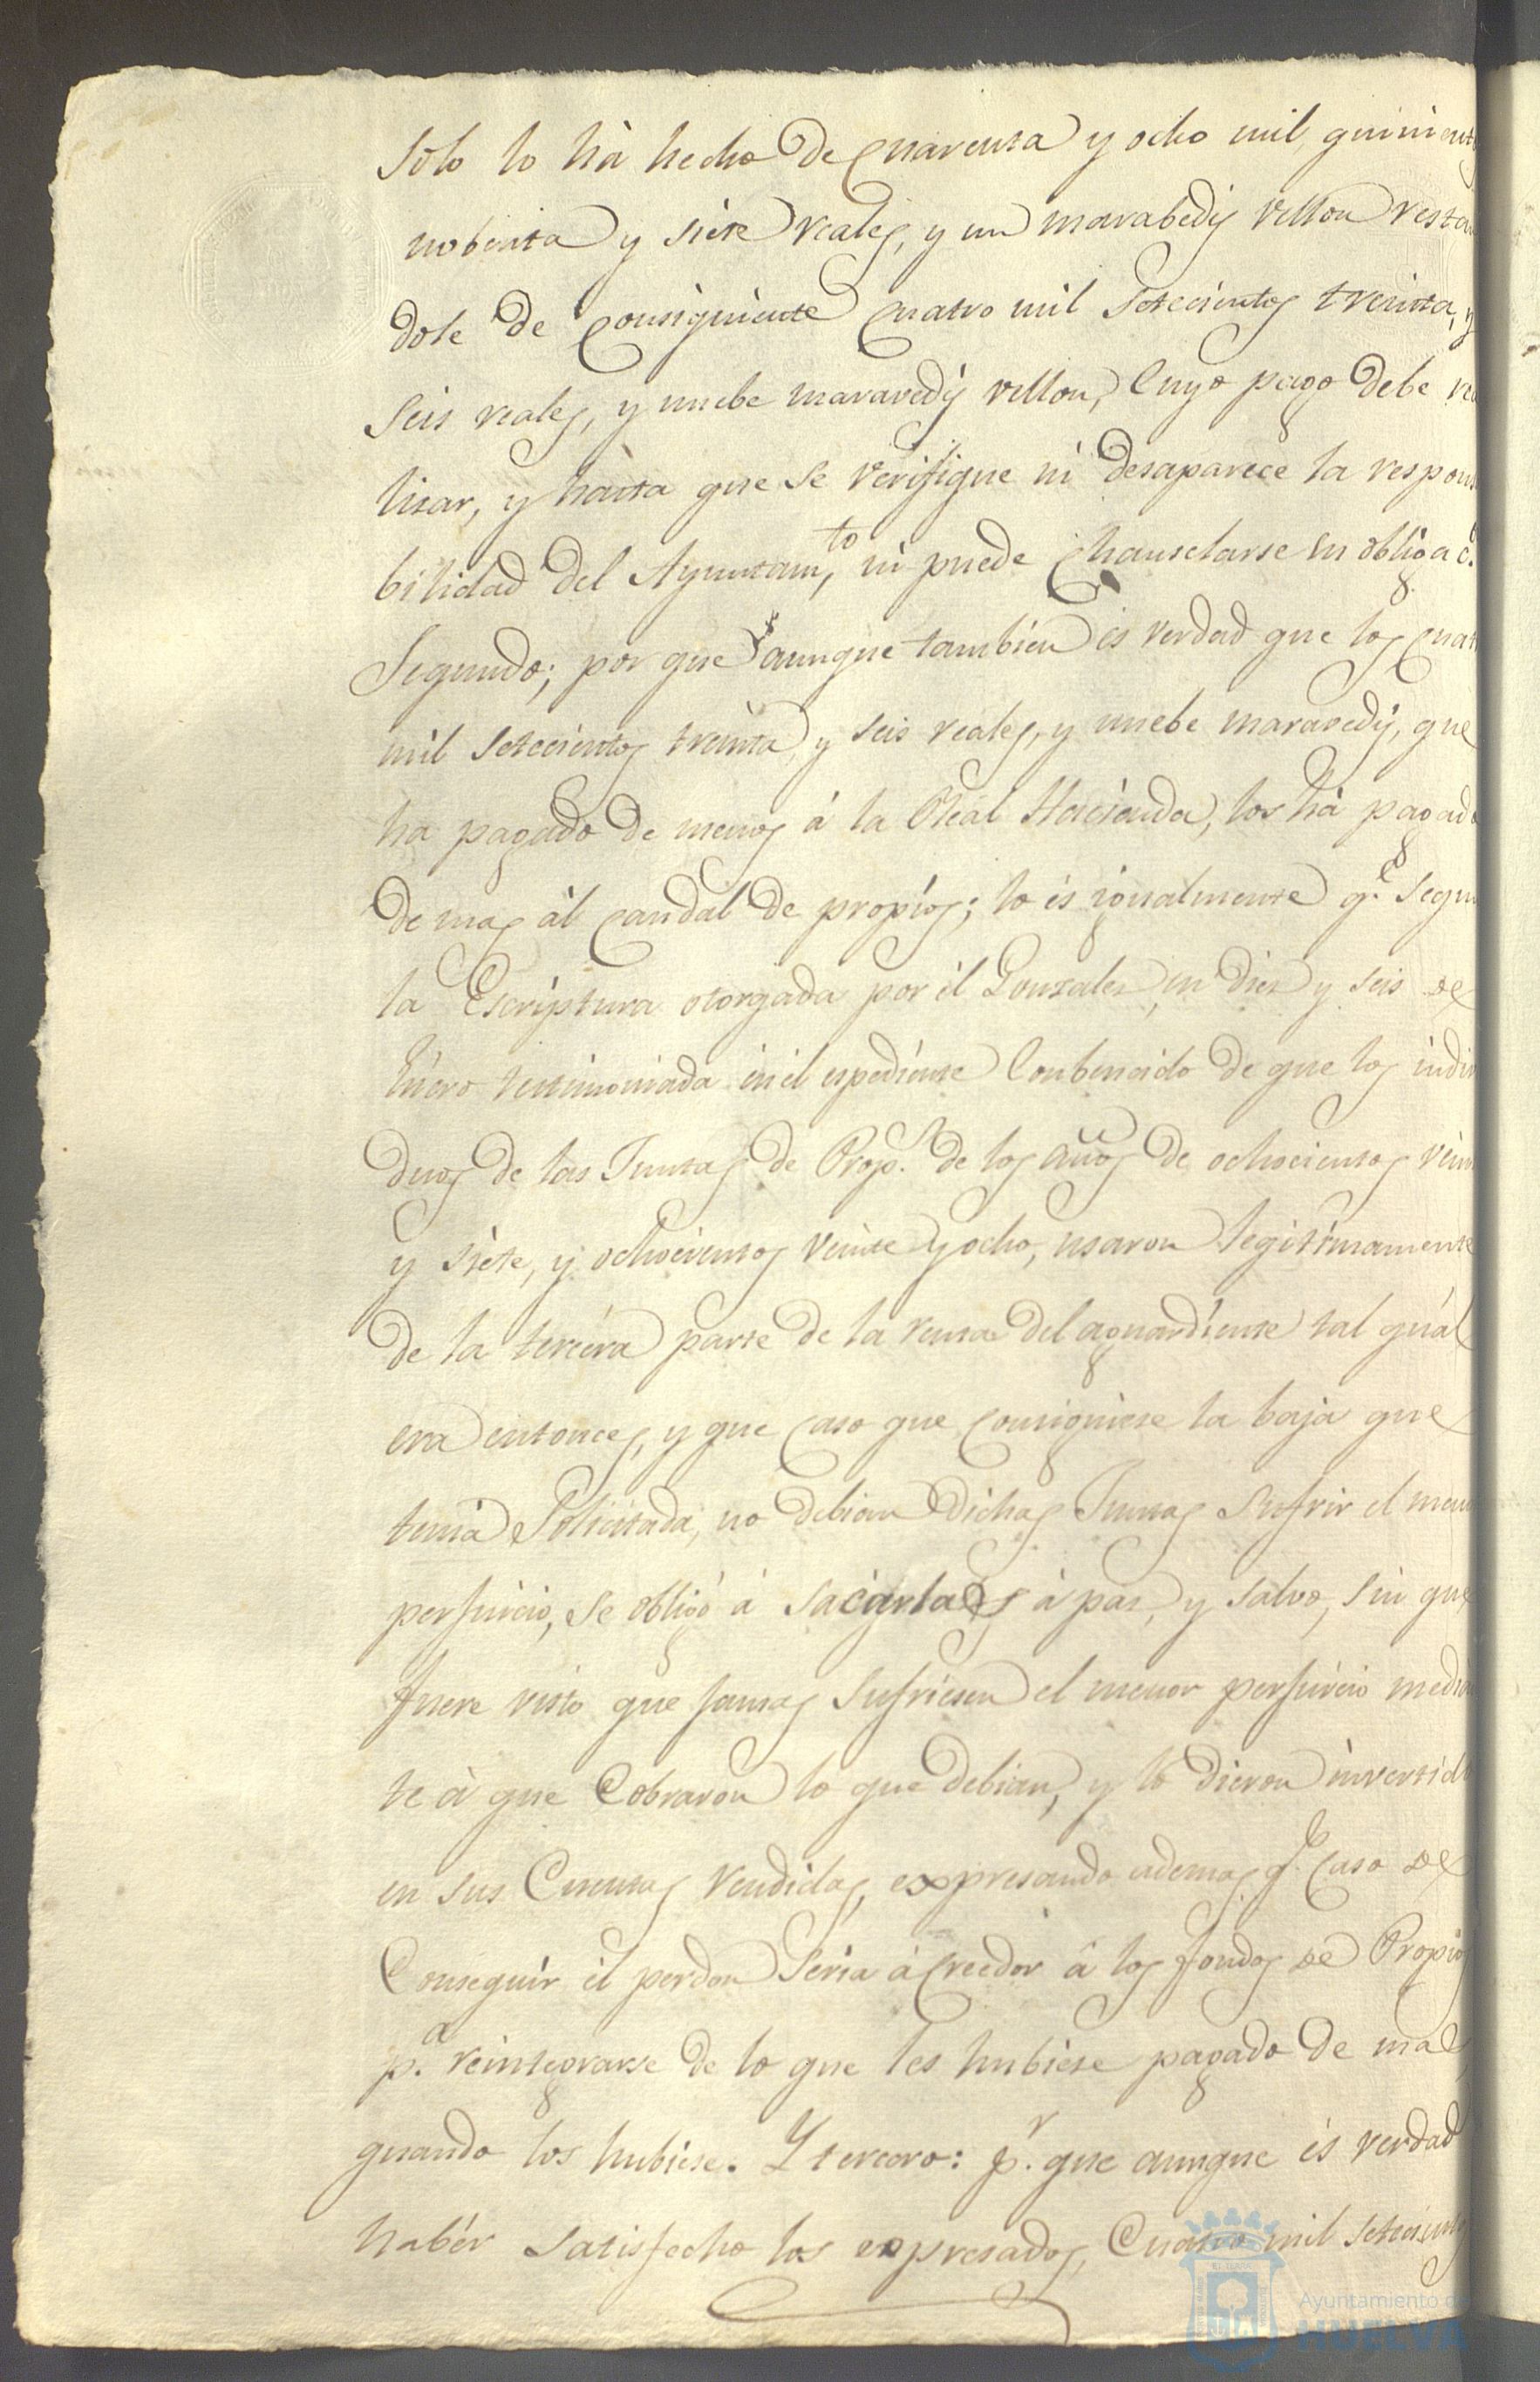 Solo lo há hecho de quarenta y ocho mil quinient
nobenta y siete reales, y un marabedis vellon resta
dole de consiguiente cuatro mil setecientos treinta, y
seis reales, y nuebe maravedis vellon, cuyo pago debe rea
lisar, y hasta que se verifique ni desaparece la respons
bilidad del Ayuntamto, ni puede chanselarse su obligac.
Segundo; por que aunque tambien es verdad que los cuat
mil setecientos treinta y seis reales, y nuebe maravedis, que
ha pagado de menos á la Real Hacienda, los há pagado
de mas ál caudal de propios; lo es igualmente qe. segun
la Escriptura otorgada por él Gonzales, en dies y seis de
Enero testimoniada en él espediente Conbencido de que los indivi
duos de las Juntas de Prop.s de los años de ochocientos vein
y siete, y ochocientos veinte y ocho, usaron legitimamente
de la tercera parte de la renta del aguardiente tal quál
era entonces, y que caso que consiguiese la baja que
tenia Solicitada, no debian dichas Juntas sufrir el meno
perjuicio, se obligó á sacarlas á pas, y salvo, sin que
fuere visto que jamas sufriesen el menor perjuicio media
te á que Cobraron lo que debian, y lo dieron invertido
en sus Cuentas rendidas, expresando ademas qe. caso de
Conseguir él perdon seria ácreedor á los fondos de Propios
pa. reintegrarse de lo que les hubiese pagado de mas,
quando los hubiese. Y tercero: pr. que aunque és verdad
habér satisfecho los expresados, Cuatro mil setecientos
Ayuntamiento de
HUELVA